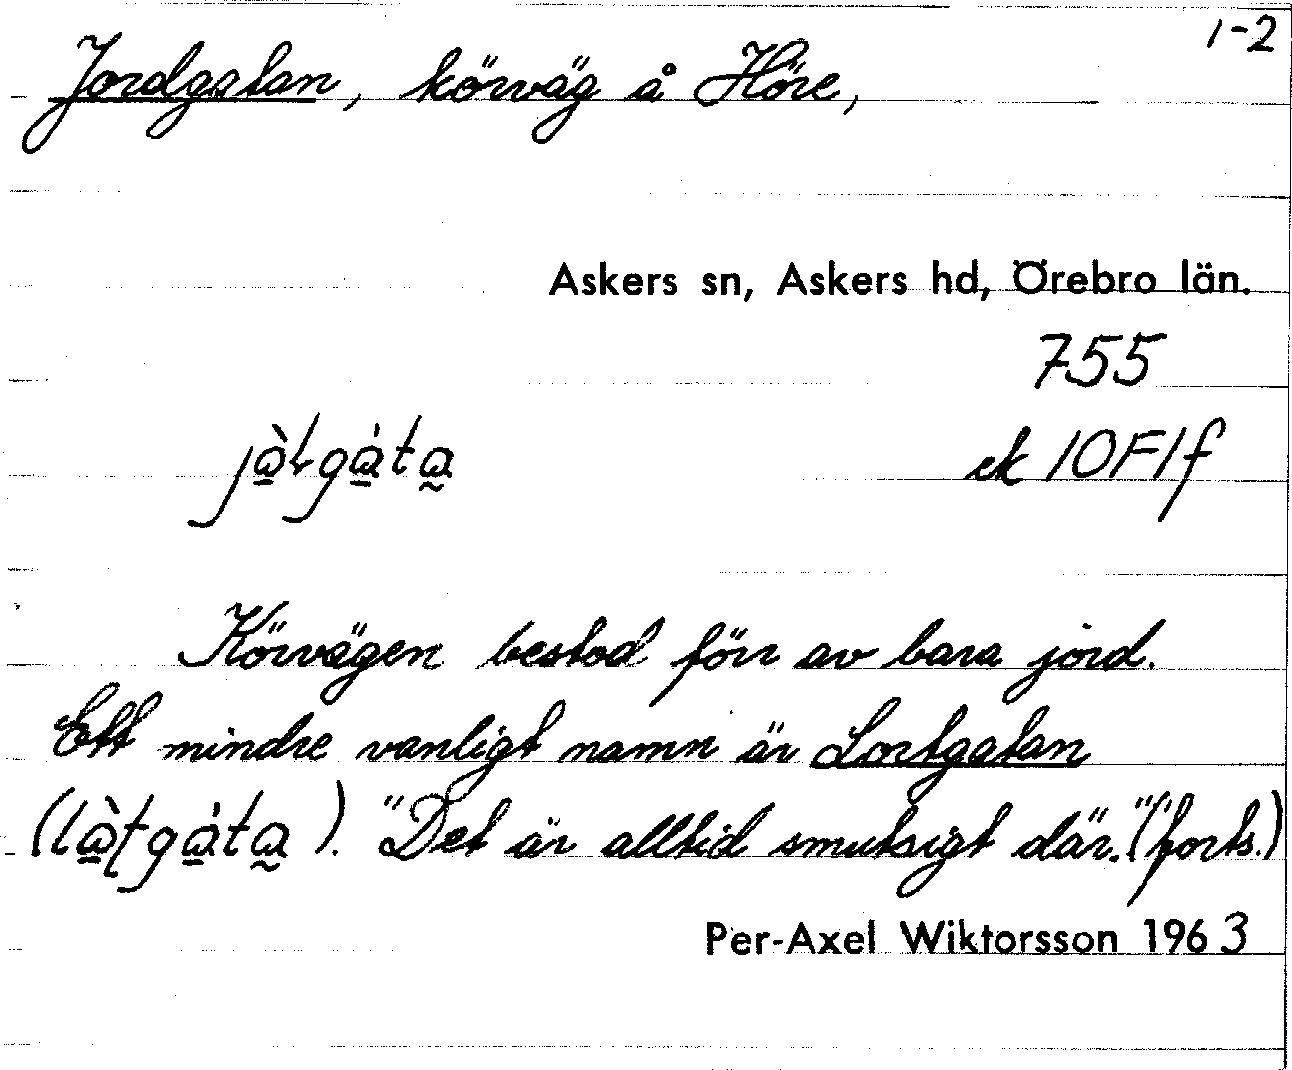 1-2
Jordgatan, körväg å Höre,
Askers sn, Askers hd, Örebro län.
755
ek 10F1f
Körvägen bestod förr av bara jord.
Ett mindre vanligt namn är Lortgatan
"Det är alltid smutsigt där." (forts.)
Per-Axel Wiktorsson 1963